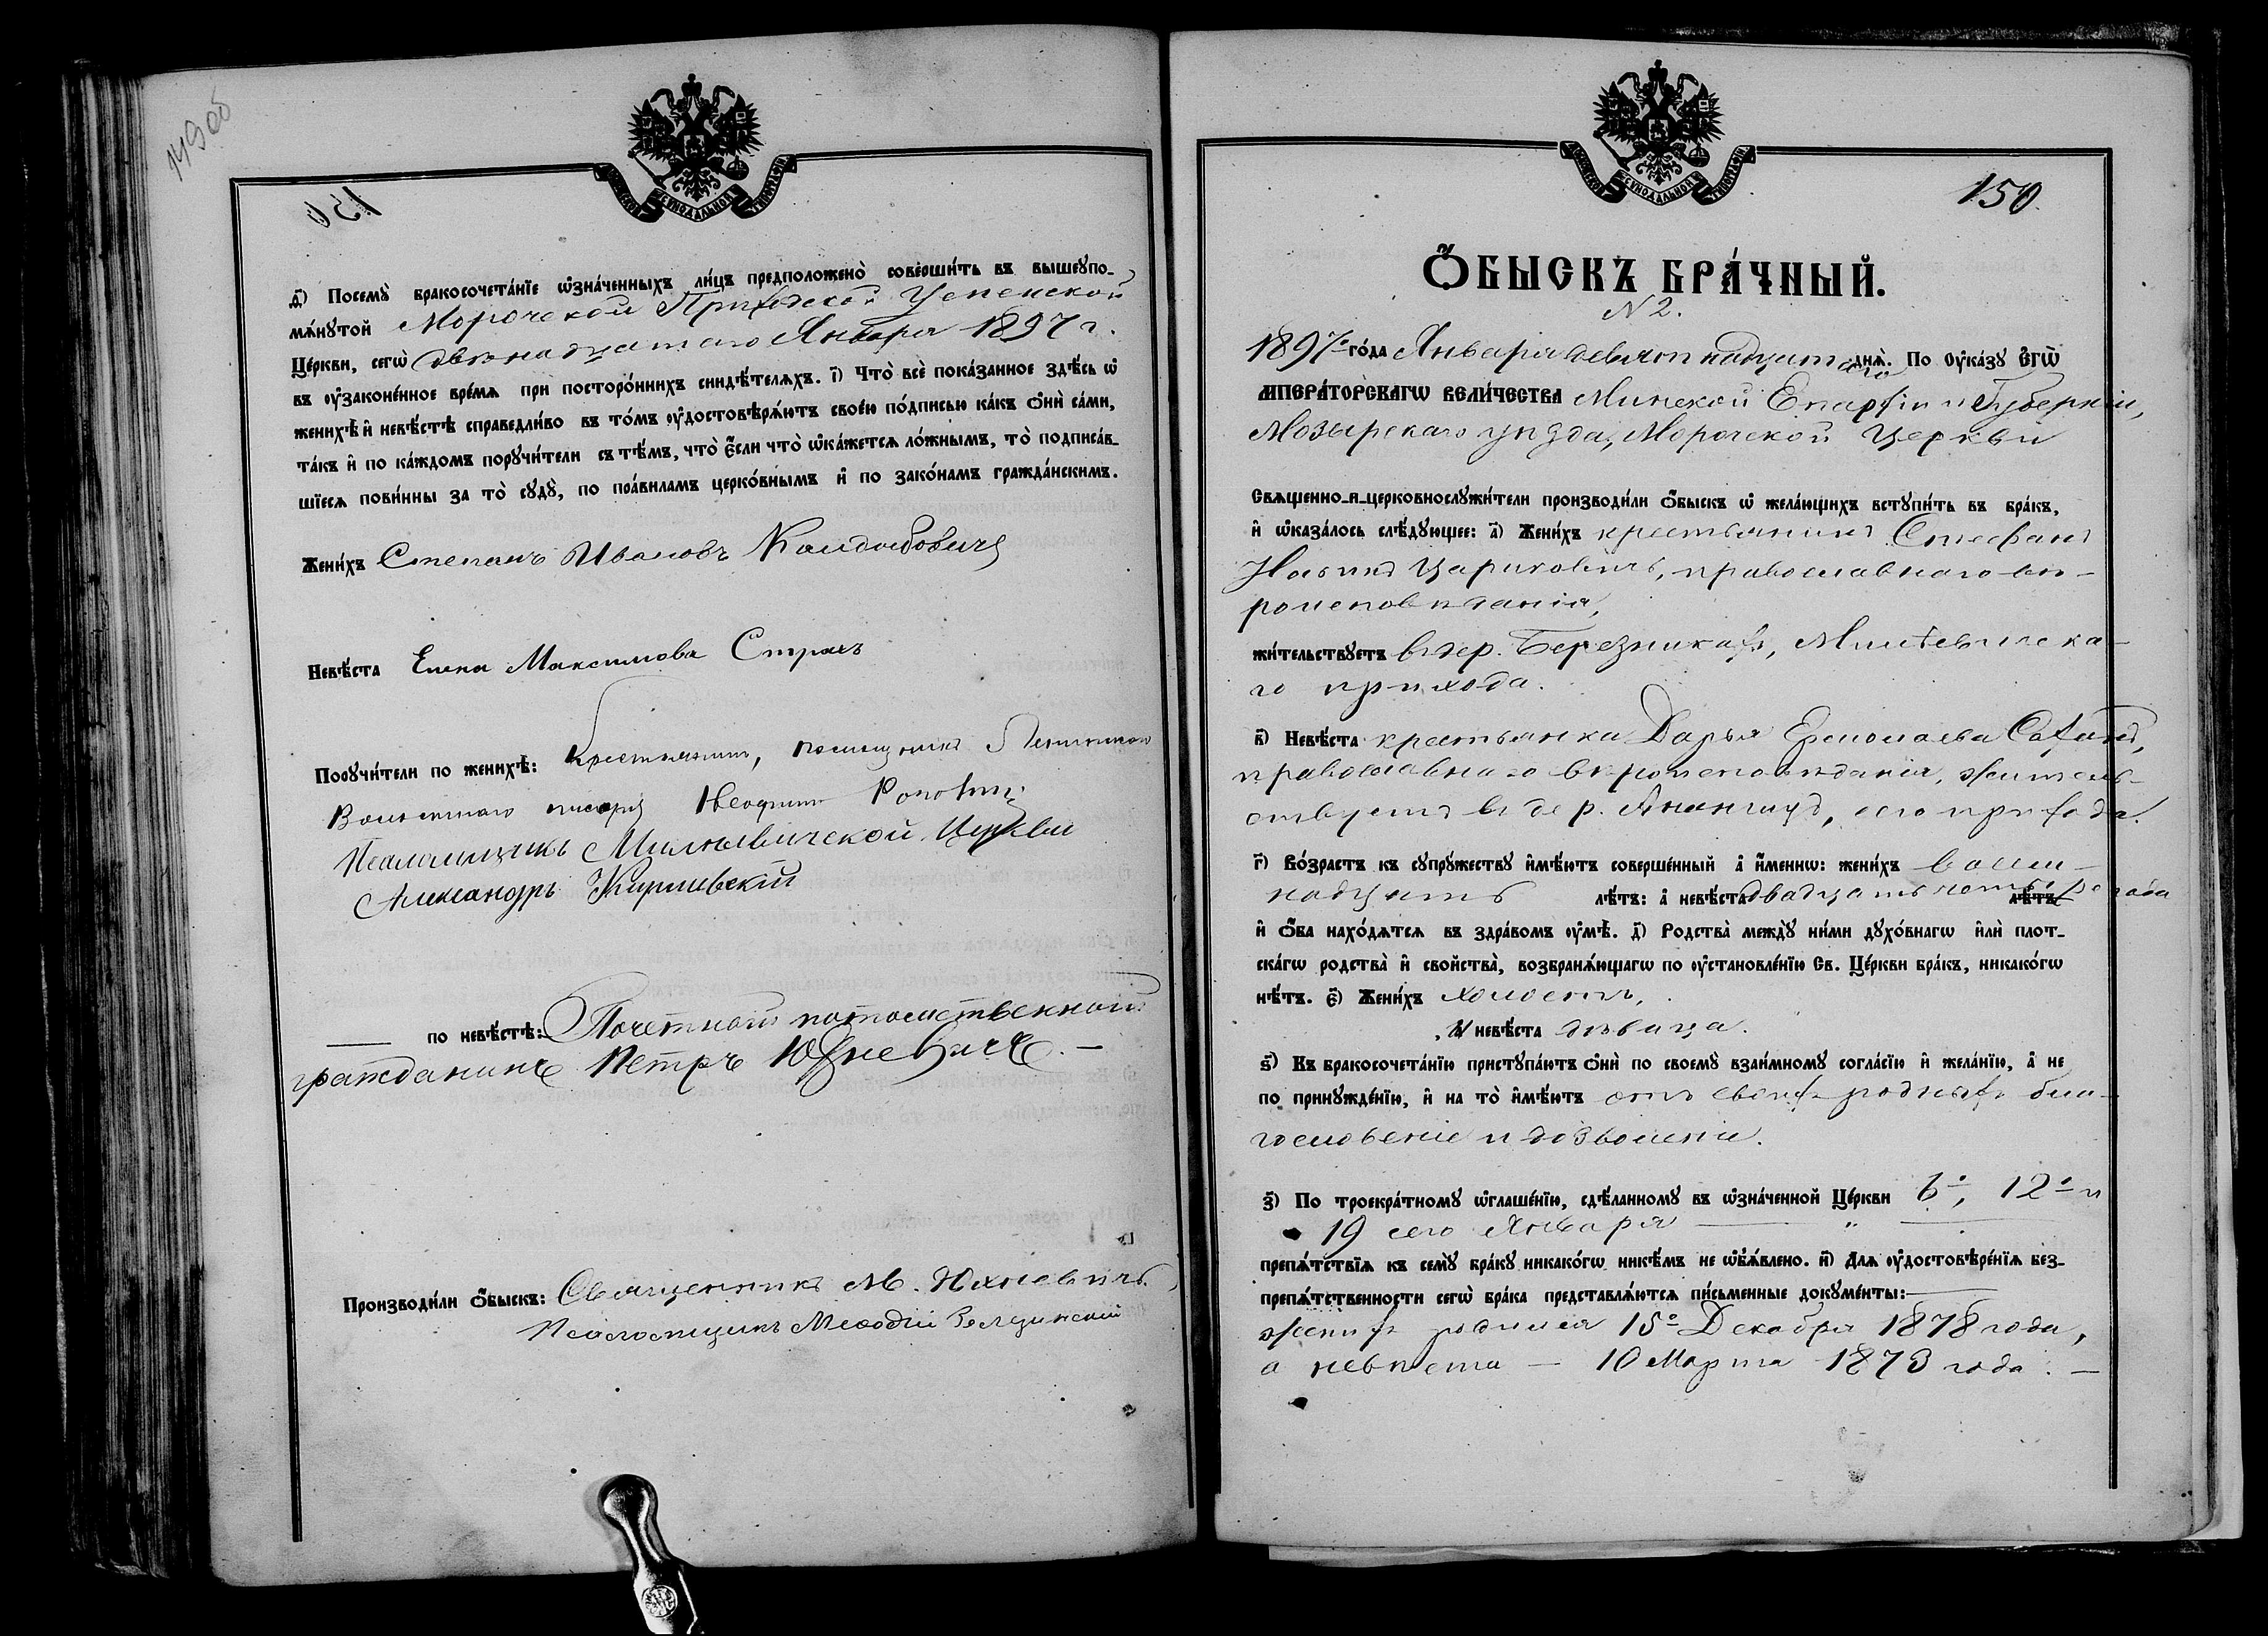 149об
СѴНОДАЛЬНОЙ
ѳ҃) Посемꙋ̀ бракосочета́нїе ѡ҆зна́ченныхъ ли́цъ предположено̀ соверши́ть въ вышеꙋпо-
мѧ́нꙋтой Морочской Приходской Успенской
Це́ркви, сегѡ̀ двѣнадцатаго Января 1897 г.
въ ᲂу҆законе́нное вре́мѧ при посторо́ннихъ свидѣ́телѧхъ. і҃) Что̀ всѐ пока́занное здѣ́сь ѡ҆
женихѣ̀ и҆ невѣ́стѣ справедли́во въ то́мъ ᲂу҆достовѣрѧ́ютъ свое́ю по́дписью ка́къ ѻ҆нѝ са́ми,
та́къ и҆ по ка́ждомъ порꙋчи́тели съ тѣ́мъ, что̀ є҆́сли что̀ ѡ҆ка́жетсѧ ло́жнымъ, то̀ подписа́в-
шїесѧ пови́нны за то̀ сꙋдꙋ̀, по пра́виламъ церко́внымъ и҆ по зако́намъ гражда́нскимъ.
Жени́хъ Степанъ Ивановъ
Невѣ́ста Елена Максимова Страхъ
Порꙋчи́тели по женихѣ̀: Крестьянинъ, помощникъ Ленинскаго
Волостного писаря
Псаломщикъ Милевичской Церкви
Александръ
по невѣ́стѣ: Почетный потомственный
гражданинъ Петръ Юхневичъ. —
Производи́ли ѻ҆́быскъ: Священникъ М. Юхневичъ
Псаломщикъ Меѳодій
СѴНОДАЛЬНОЙ
150.
Ѻ҆́БЫСКЪ БРА́ЧНЫЙ.
N 2.
1897 го́да Января девятнадцатаго днѧ̀. По ᲂу҆ка́зꙋ Є҆гѡ̀
И҆МПЕРА́ТОРСКАГѠ ВЕЛИ́ЧЕСТВА Минской Епархіи и Губерніи,
Мозырскаго уѣзда, Морочской Церкви
Свѧщенно-и-церковнослꙋжи́тели производи́ли ѻ҆́быскъ ѡ҆ жела́ющихъ встꙋпи́ть въ бра́къ,
и҆ ѡ҆каза́лось слѣ́дꙋющее: а҃) Жени́хъ крестьянинъ Стефанъ
Цариковичъ, православнаго вѣ-
роисповѣданія,
жи́тельствꙋетъ въ дер. Березникахъ, Милевичска-
го прихода.
в҃) Невѣ́ста крестьянка Дарья Ермолаева
православнаго вѣроисповѣданія, житель-
ствуетъ въ дер. сего прихода.
г҃) Во́зрастъ къ сꙋпрꙋ́жествꙋ и҆мѣ́ютъ соверше́нный а҆ и҆́менно: жени́хъ восем-
надцать лѣ́тъ: а҆ невѣ́ста двадцать четыре года лѣ́тъ
и҆ ѻ҆́ба нахо́дѧтсѧ въ здра́вомъ ᲂу҆мѣ̀. д҃) Родства̀ междꙋ̀ ни́ми дꙋхо́внагѡ и҆лѝ плот-
ска́гѡ родства̀ и҆ свойства̀, возбранѧ́ющагѡ по ᲂу҆становле́нїю Св. Це́ркви бра́къ, никако́гѡ
нѣ́тъ. є҃) Жени́хъ холостъ,
и невѣ́ста дѣвица.
ѕ҃) Къ бракосочета́нїю пристꙋпа́ютъ ѻ҆нѝ по своемꙋ̀ взаи́мномꙋ согла́сїю и҆ жела́нїю, а҆ не
по принꙋжде́нїю, и҆ на то̀ и҆мѣ́ютъ отъ своихъ родныхъ бла-
гословеніе и дозволеніе.
з҃) По троекра́тномꙋ ѡ҆глаше́нїю, сдѣ́ланномꙋ въ ѡ҆зна́ченной Це́ркви 6го, 12го и
19 сего Января — " —
препѧ́тствїѧ къ семꙋ̀ бра́кꙋ никако́гѡ никѣ́мъ не ѡ҆б̾ѧ́влено. и҃) Длѧ ᲂу҆достовѣре́нїѧ без-
препѧ́тственности сегѡ̀ бра́ка представлѧ́ютсѧ пи́сьменные докꙋме́нты: —
женихъ родился 15го Декабря 1878 года,
а невѣста — 10 Марта 1873 года. —